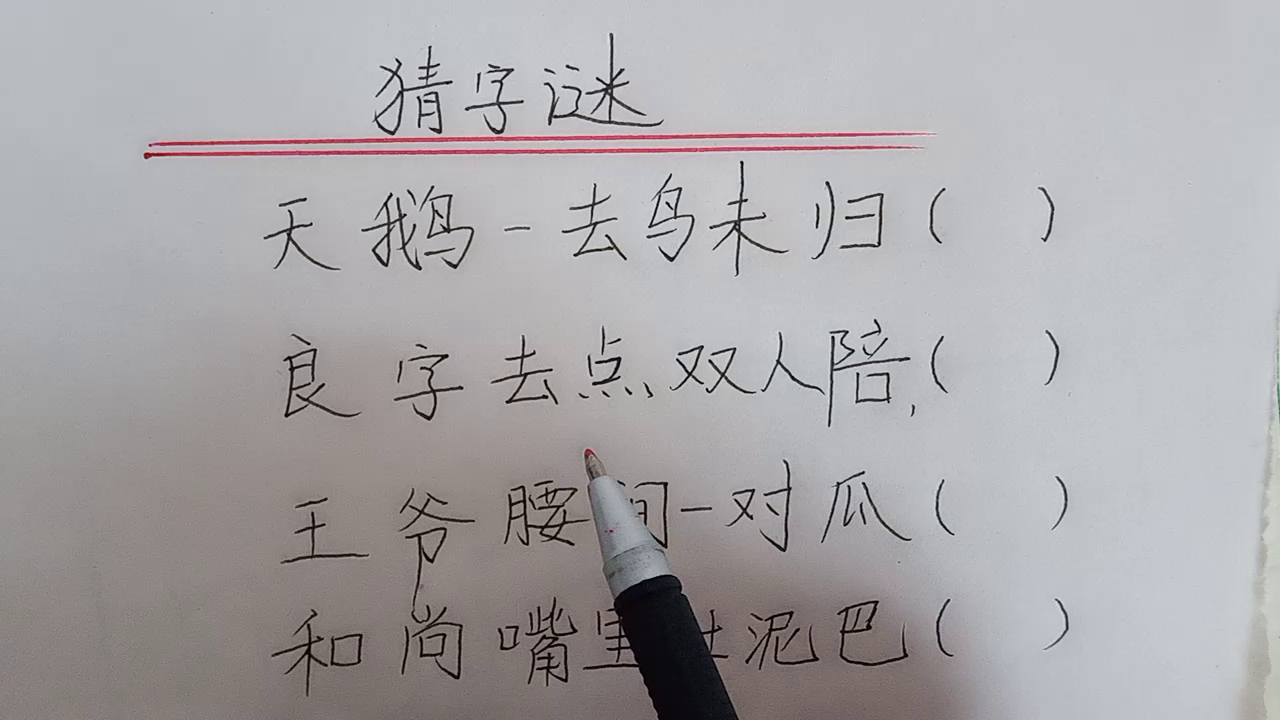 猜字谜
天鹅一去鸟未归( )
良字去点双人陪,( )
王爷腰间一对瓜( )
和尚嘴里吐泥巴( )